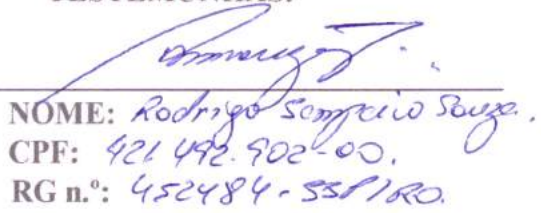 TESTEMUNHAS:
NOME: Rodrigo Sampaio Souza.
CPF: 421.492.902-00.
RG n.º: 452484-SSP/RO.